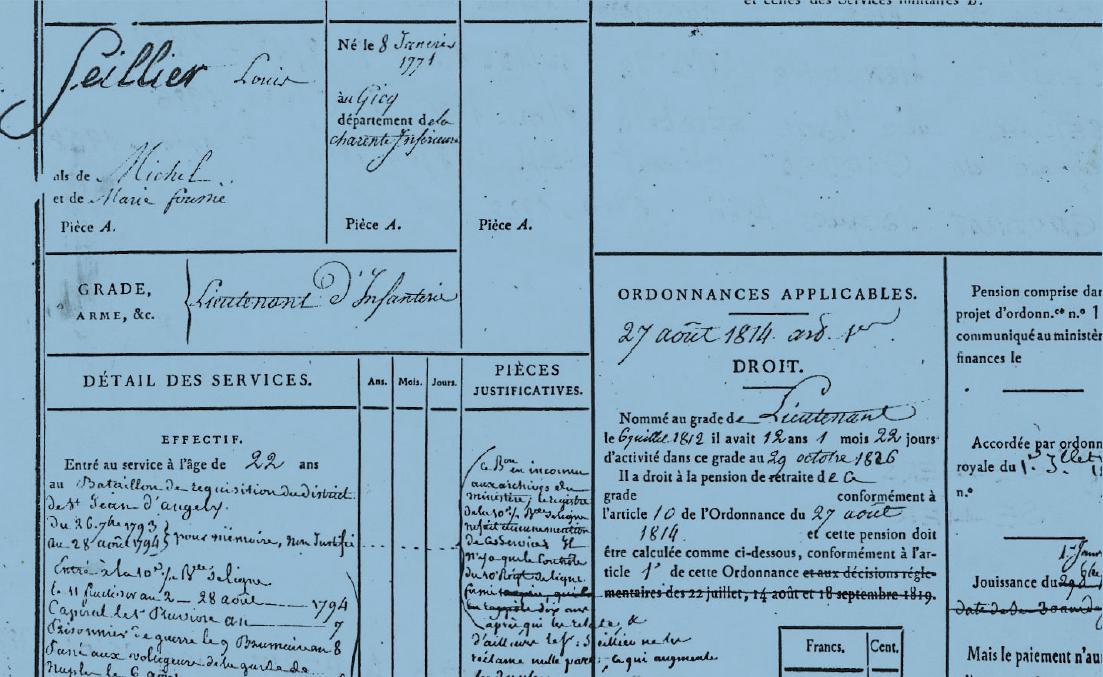 et celles des Services militaires B.
Seillier Louis
fils de Michel
et de Marie fournié
Pièce A.
Né le 8 Janvier
1771
au Gicq
département de la
charente Inférieure
Pièce A.
Pièce A.
GRADE,
ARME, &c.
Lieutenant d'Infanterie
DÉTAIL DES SERVICES.
Ans.
Mois.
Jours.
PIÈCES
JUSTIFICATIVES.
EFFECTIF.
Entré au service à l'âge de 22 ans
au Bataillon de requisition du district
de St Jean d'angely
Du 26 7bre 1793
au 28 août 1794 } pour mémoire, non Justifié
Entré à la 10e 1/2 Bde de ligne
le 11 fructidor an 2 — 28 août 1794
Caporal le 1er Prairial an 7
Prisonnier de guerre le 9 Brumaire an 8
Passé aux voltigeurs de la garde de
Naples le 6
ce Bon en inconnu
aux archives du
ministère; le registre
de la 10e 1/2 Bde de ligne
ne fait aucune mention
de ces services Il
n'y a que le Contrôle
du 10e Régt de ligne
après
d'ailleurs le Sr Seillier ne les
réclame nulle part; ce qui augmente
ORDONNANCES APPLICABLES.
27 août 1814 ard. 1er
DROIT.
Nommé au grade de Lieutenant
le 6 juillet 1812 il avait 12 ans 1 mois 22 jours
d'activité dans ce grade au 29 octobre 1826
Il a droit à la pension de retraite de ce
grade conformément à
l'article 10 de l'Ordonnance du 27 août
1814 et cette pension doit
être calculée comme ci-dessous, conformément à l'ar-
ticle 1er de cette Ordonnance et aux décisions régle-
mentaires des 22 juillet, 14 août et 18 septembre 1819.
Francs.
Cent.
Pension comprise dan
projet d'ordonn.ce n.o 1
communiqué au ministèr
finances le
Accordée par ordonn
royale du 1er Jllet
n.o
Jouissance du
date de
Mais le paiement n'au